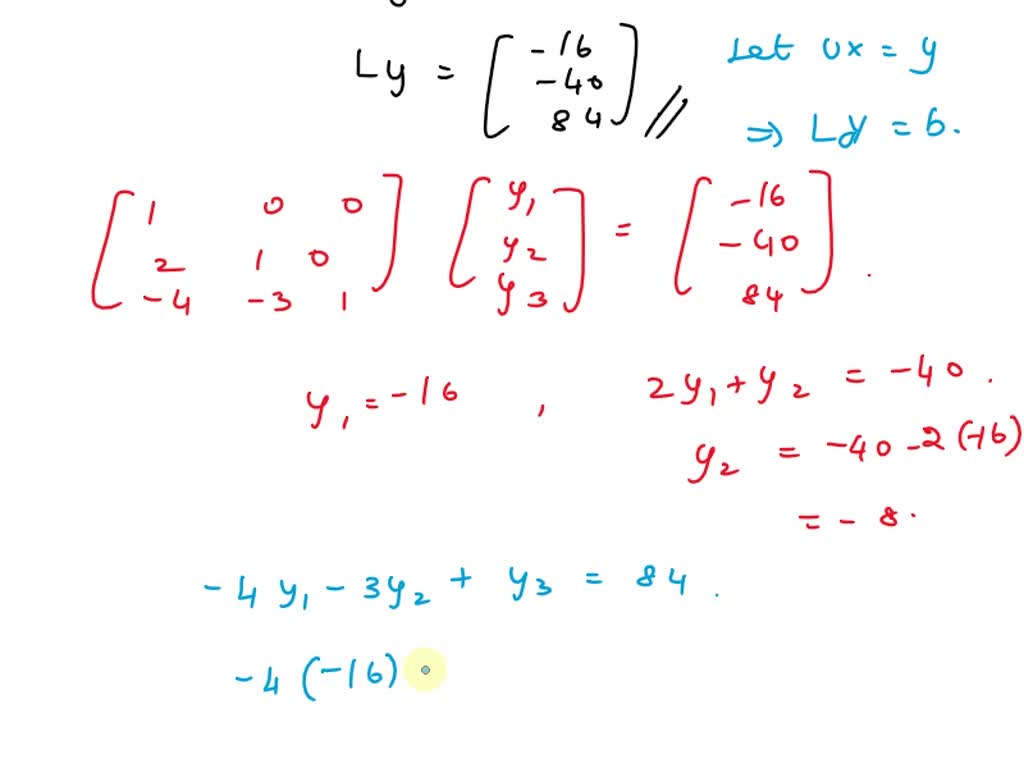 Ly = [ -16
-40
84 ] //
Let Ux = y
⇒ Ly = b.
[ 1 0 0
2 1 0
-4 -3 1 ] [ y₁
y₂
y₃ ] = [ -16
-40
84 ] .
y₁ = -16 , 2y₁ + y₂ = -40 .
y₂ = -40 -2 (-16)
= - 8 .
-4 y₁ - 3y₂ + y₃ = 84 .
-4 (-16)